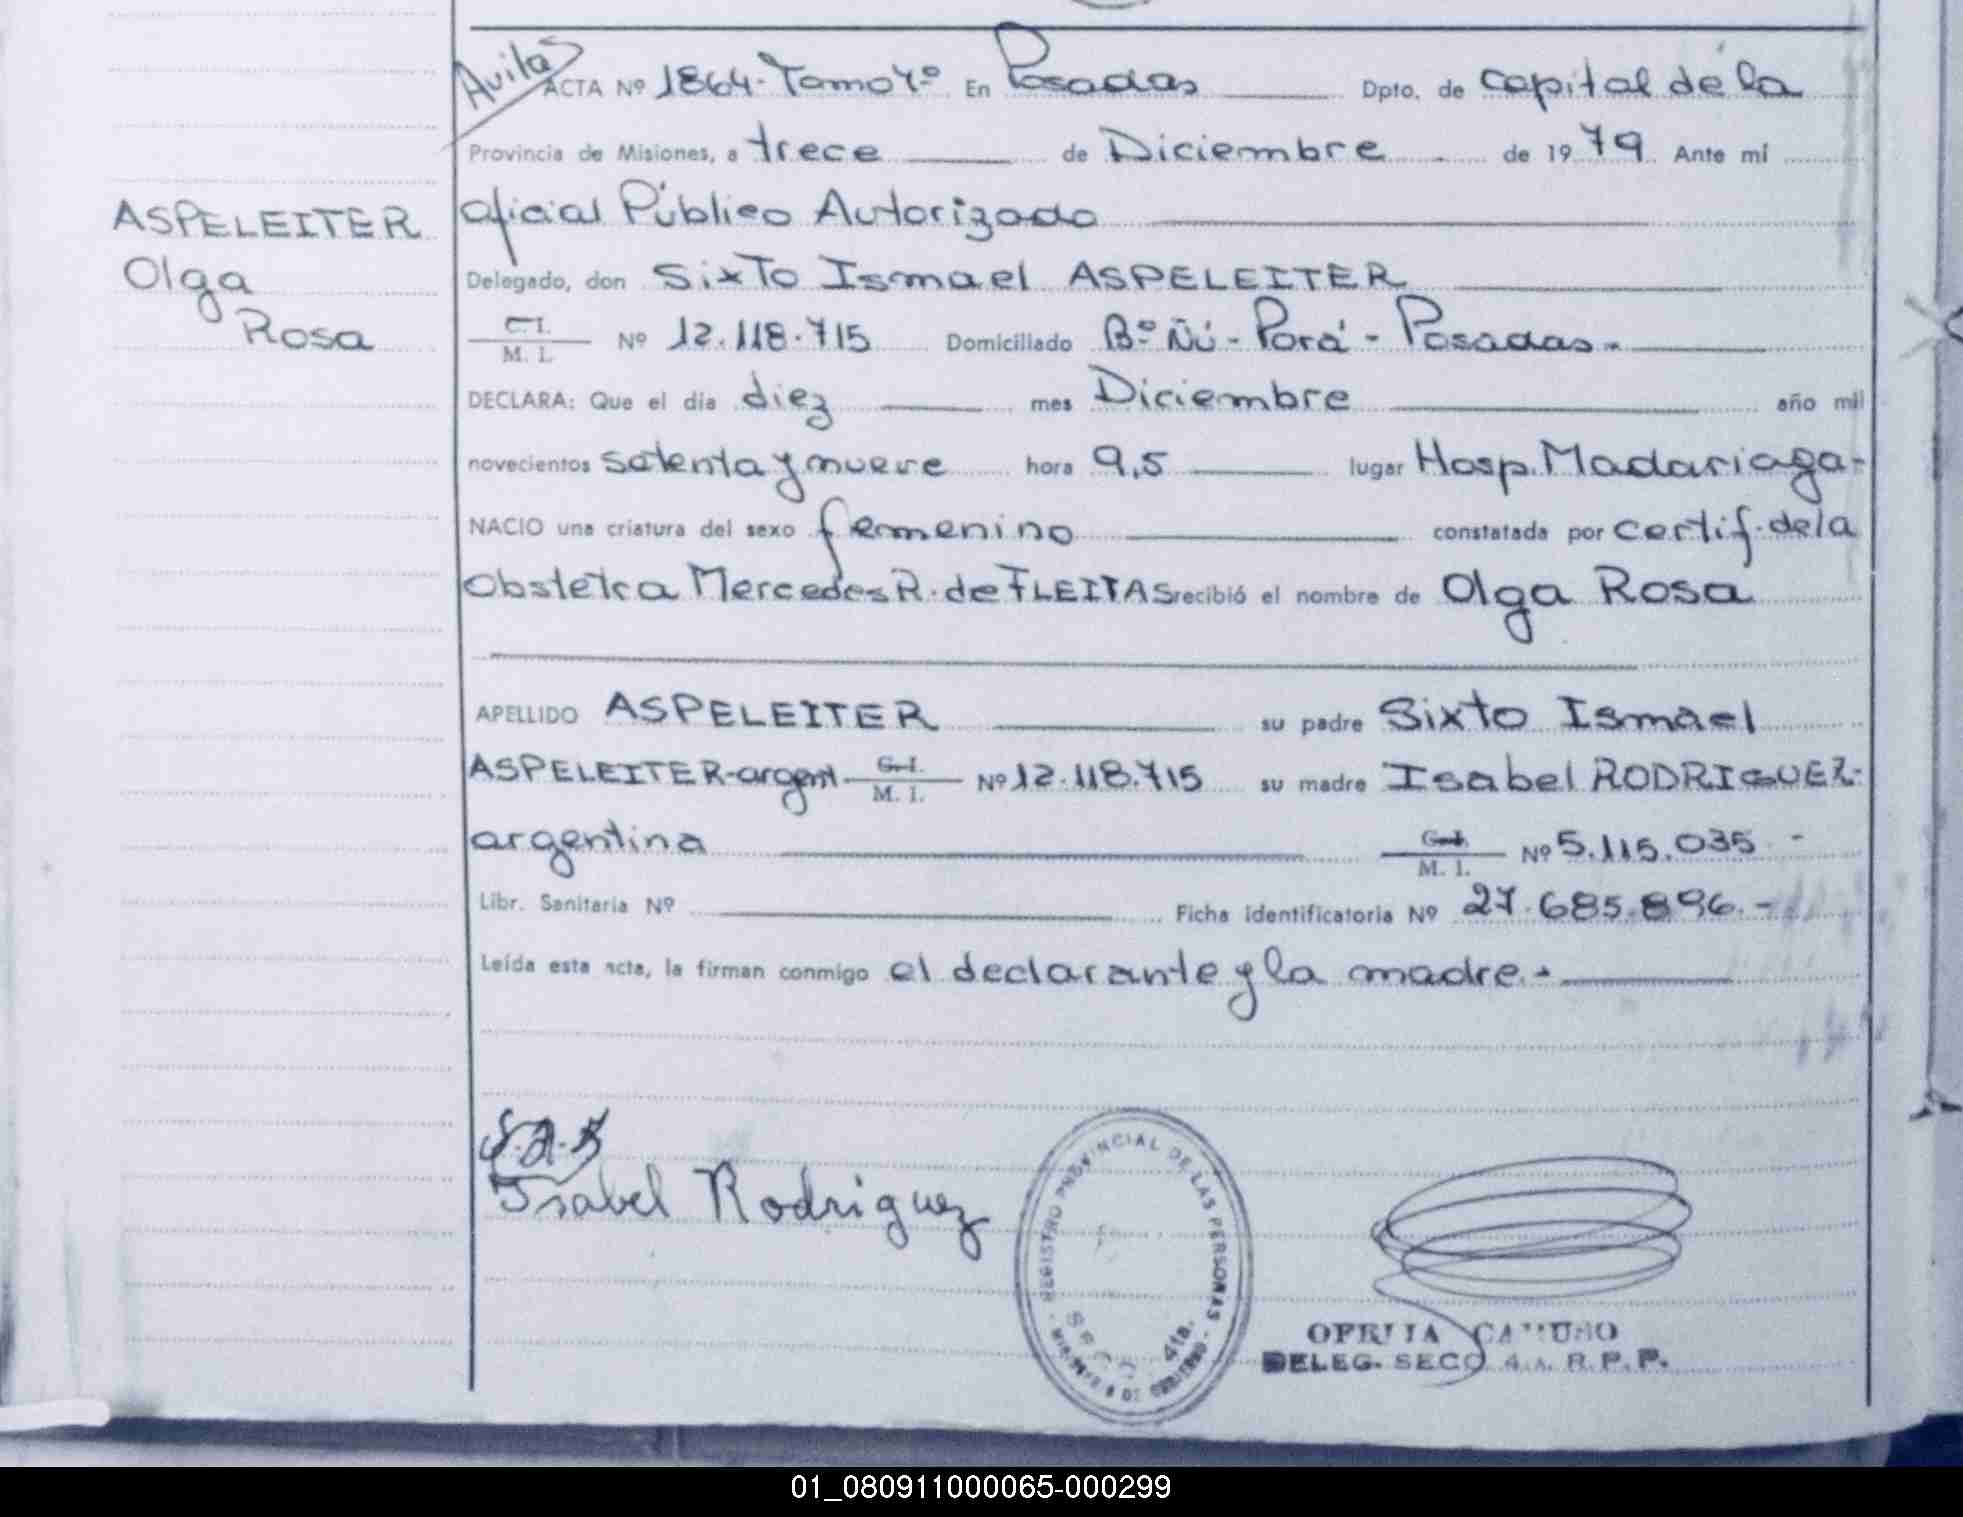 Avila
ACTA Nº 1864- Tomo 4º En Posadas Dpto. de capital de la
Provincia de Misiones, a trece de Diciembre de 1979 Ante mí
ASPELEITER
Olga
Rosa
Oficial Público Autorizado
Delegado, don Sixto Ismael ASPELEITER
C. I.
M. I. Nº 12.118.715 Domiciliado Bº Ñú-Porá-Posadas-
DECLARA: Que el día diez mes Diciembre año mil
novecientos setenta y nueve hora 9,5 lugar Hosp. Madariaga-
NACIO una criatura del sexo femenino constatada por certif. de la
Obstetra Mercedes R. de FLEITAS recibió el nombre de Olga Rosa
APELLIDO ASPELEITER su padre Sixto Ismael
ASPELEITER-argent C. I. M. I. Nº 12.118.715 su madre Isabel RODRIGUEZ-
argentina C. I. M. I. Nº 5.115.035 -
Libr. Sanitaria Nº Ficha identificatoria Nº 27.685.896.-
Leída esta acta, la firman conmigo el declarante y la madre.-
Isabel Rodriguez
REGISTRO PROVINCIAL DE LAS PERSONAS
SECC. 4ta.
DELEG. SECC 4.A. R.P.P.
01_080911000065-000299